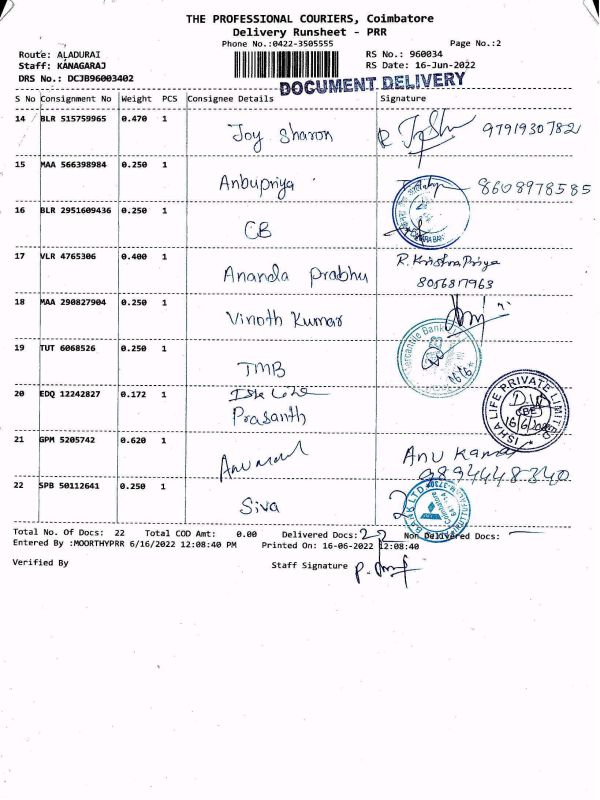 THE PROFESSIONAL COURIERS, Coimbatore
Delivery Runsheet - PRR
Phone No.:0422-3505555 Page No.:2
Route: ALADURAI RS No.: 960034
Staff: KANAGARAJ RS Date: 16-Jun-2022
DRS No.: DCJB96003402
DOCUMENT DELIVERY
S No Consignment No Weight PCS Consignee Details Signature
14 BLR 515759965 0.470 1 Joy Sharon 9791930782
15 MAA 566398984 0.250 1 Anbupriya 8608978585
16 BLR 2951609436 0.250 1 CB
17 VLR 4765306 0.400 1 Ananda Prabhu R. Krishna Priya
8056817963
18 MAA 290827904 0.250 1 Vinoth Kumar
19 TUT 6068526 0.250 1 TMB
Mercantile Bank
16/6
20 EDQ 12242827 0.172 1 Prasanth
ISHA LIFE PRIVATE LIMITED
CBE
21 GPM 5205742 0.620 1 Anu Kama
9894448340
22 SPB 50112641 0.250 1 Siva
BANK LTD
Total No. Of Docs: 22 Total COD Amt: 0.00 Delivered Docs: 22 Non Delivered Docs:
Entered By :MOORTHYPRR 6/16/2022 12:08:40 PM Printed On: 16-06-2022 12:08:40
Verified By Staff Signature